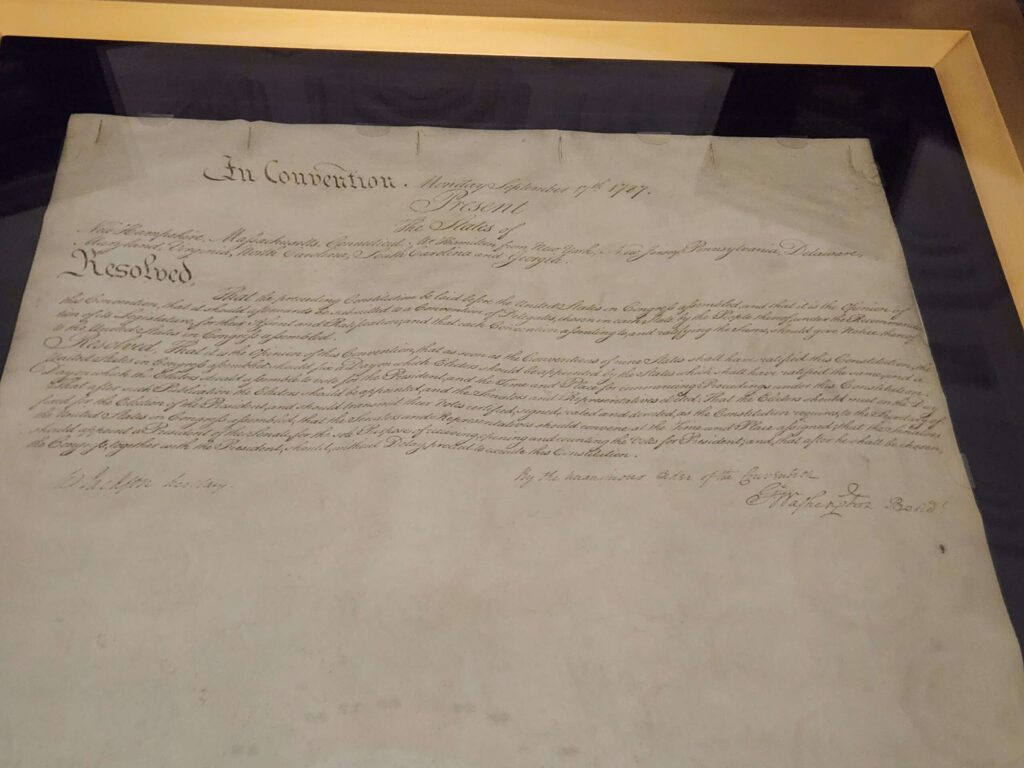 In Convention. Monday September 17th 1787.
Present
The States of
New Hampshire, Massachusetts, Connecticut, Mr. Hamilton from New York, New Jersey, Pennsylvania, Delaware,
Maryland, Virginia, North Carolina, South Carolina and Georgia.
Resolved,
That the preceding Constitution be laid before the United States in Congress assembled, and that it is the Opinion of
this Convention, that it should afterwards be submitted to a Convention of Delegates, chosen in each State by the People thereof, under the Recommenda-
tion of its Legislature, for their Assent and Ratification; and that each Convention assenting to, and ratifying the Same, should give Notice thereof
to the United States in Congress assembled.
Resolved, That it is the Opinion of this Convention, that as soon as the Conventions of nine States shall have ratified this Constitution, the
United States in Congress assembled should fix a Day on which Electors should be appointed by the States which shall have ratified the same, and a
Day on which the Electors should assemble to vote for the President, and the Time and Place for commencing Proceedings under this Constitution.
That after such Publication the Electors should be appointed, and the Senators and Representatives elected: That the Electors should meet on the Day
fixed for the Election of the President, and should transmit their Votes certified, signed, sealed and directed, as the Constitution requires, to the Secretary of
the United States in Congress assembled, that the Senators and Representatives should convene at the Time and Place assigned; that the Senators
should appoint a President of the Senate, for the sole Purpose of receiving, opening and counting the Votes for President; and, that after he shall be chosen,
the Congress, together with the President, should, without Delay, proceed to execute this Constitution.
By the unanimous Order of the Convention
W. Jackson Secretary.
Go Washington Presidt